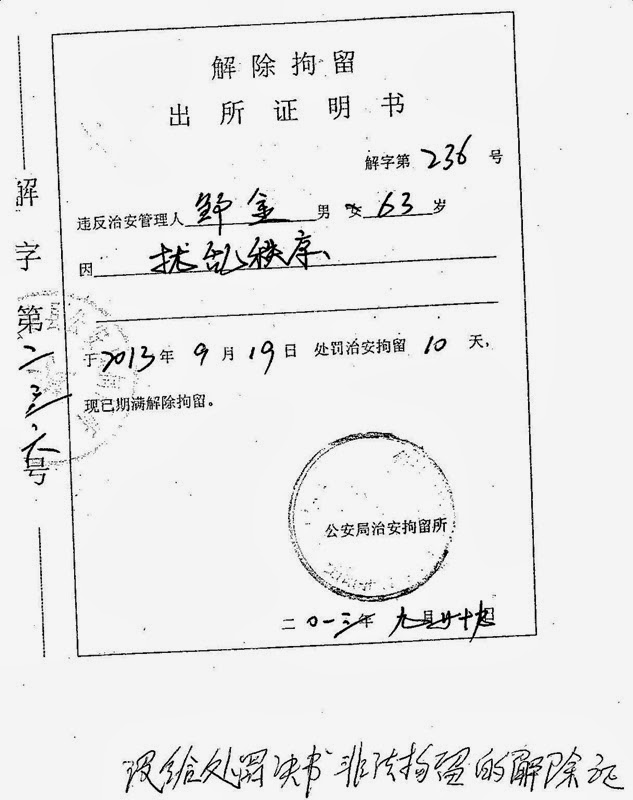 解除拘留
出所证明书
解字第 236 号
违反治安管理人 邹金 男 女 63 岁
因 扰乱秩序
于 2013 年 9 月 19 日 处罚治安拘留 10 天,
现已期满解除拘留。
公安局治安拘留所
二〇一三年 九月廿九日
解字第二三六号
没给处罚决书非法拘留的解除证